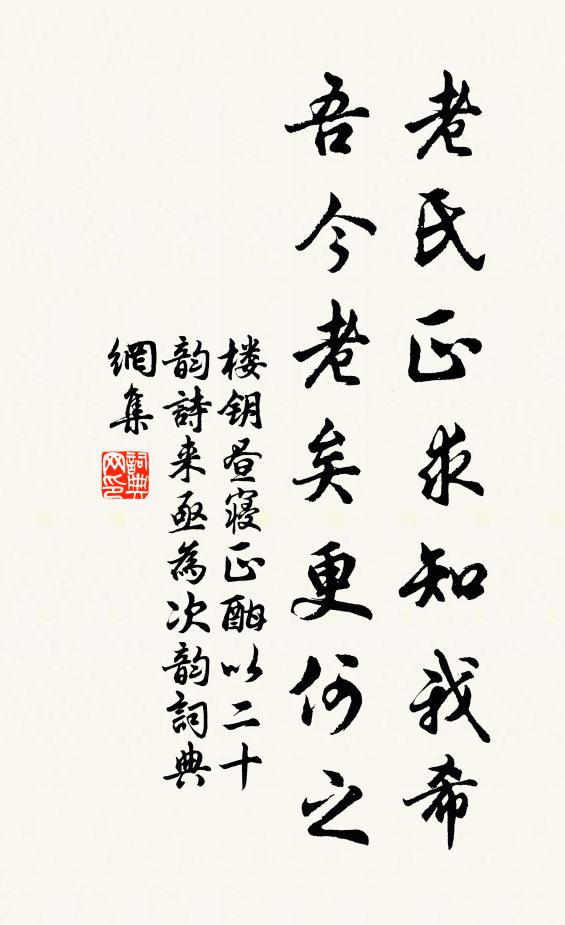 老氏正求知我希
吾今老矣更何之
楼钥昼寝正酣以二十
韵詩来亟為次韵詞典
網集
詞典网印